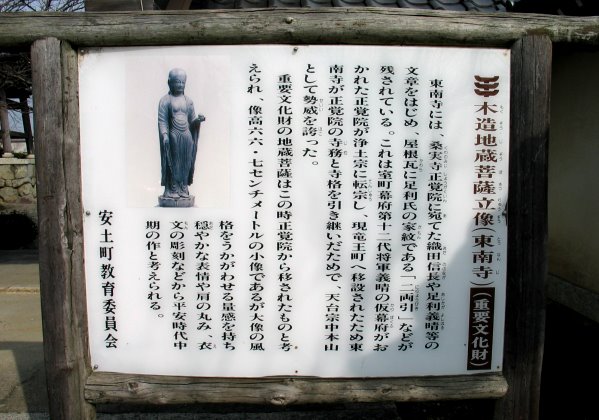 木造地蔵菩薩立像(東南寺)(重要文化財)
東南寺には、桑実寺正覚院に宛てた織田信長や足利義晴等の
文章をはじめ、屋根瓦に足利氏の家紋である「二両引」などが
残されている。これは室町幕府第十二代将軍義晴の仮幕府がお
かれた正覚院が浄土宗に転宗し、現竜王町へ移設されたため東
南寺が正覚院の寺務と寺格を引き継いだためで、天台宗中本山
として勢威を誇った。
重要文化財の地蔵菩薩はこの時正覚院から移されたものと考
えられ、像高六六・七センチメートルの小像であるが大像の風
格をうかがわせる量感を持ち
穏やかな表情や肩の丸み、衣
文の彫刻などから平安時代中
期の作と考えられる。
安土町教育委員会